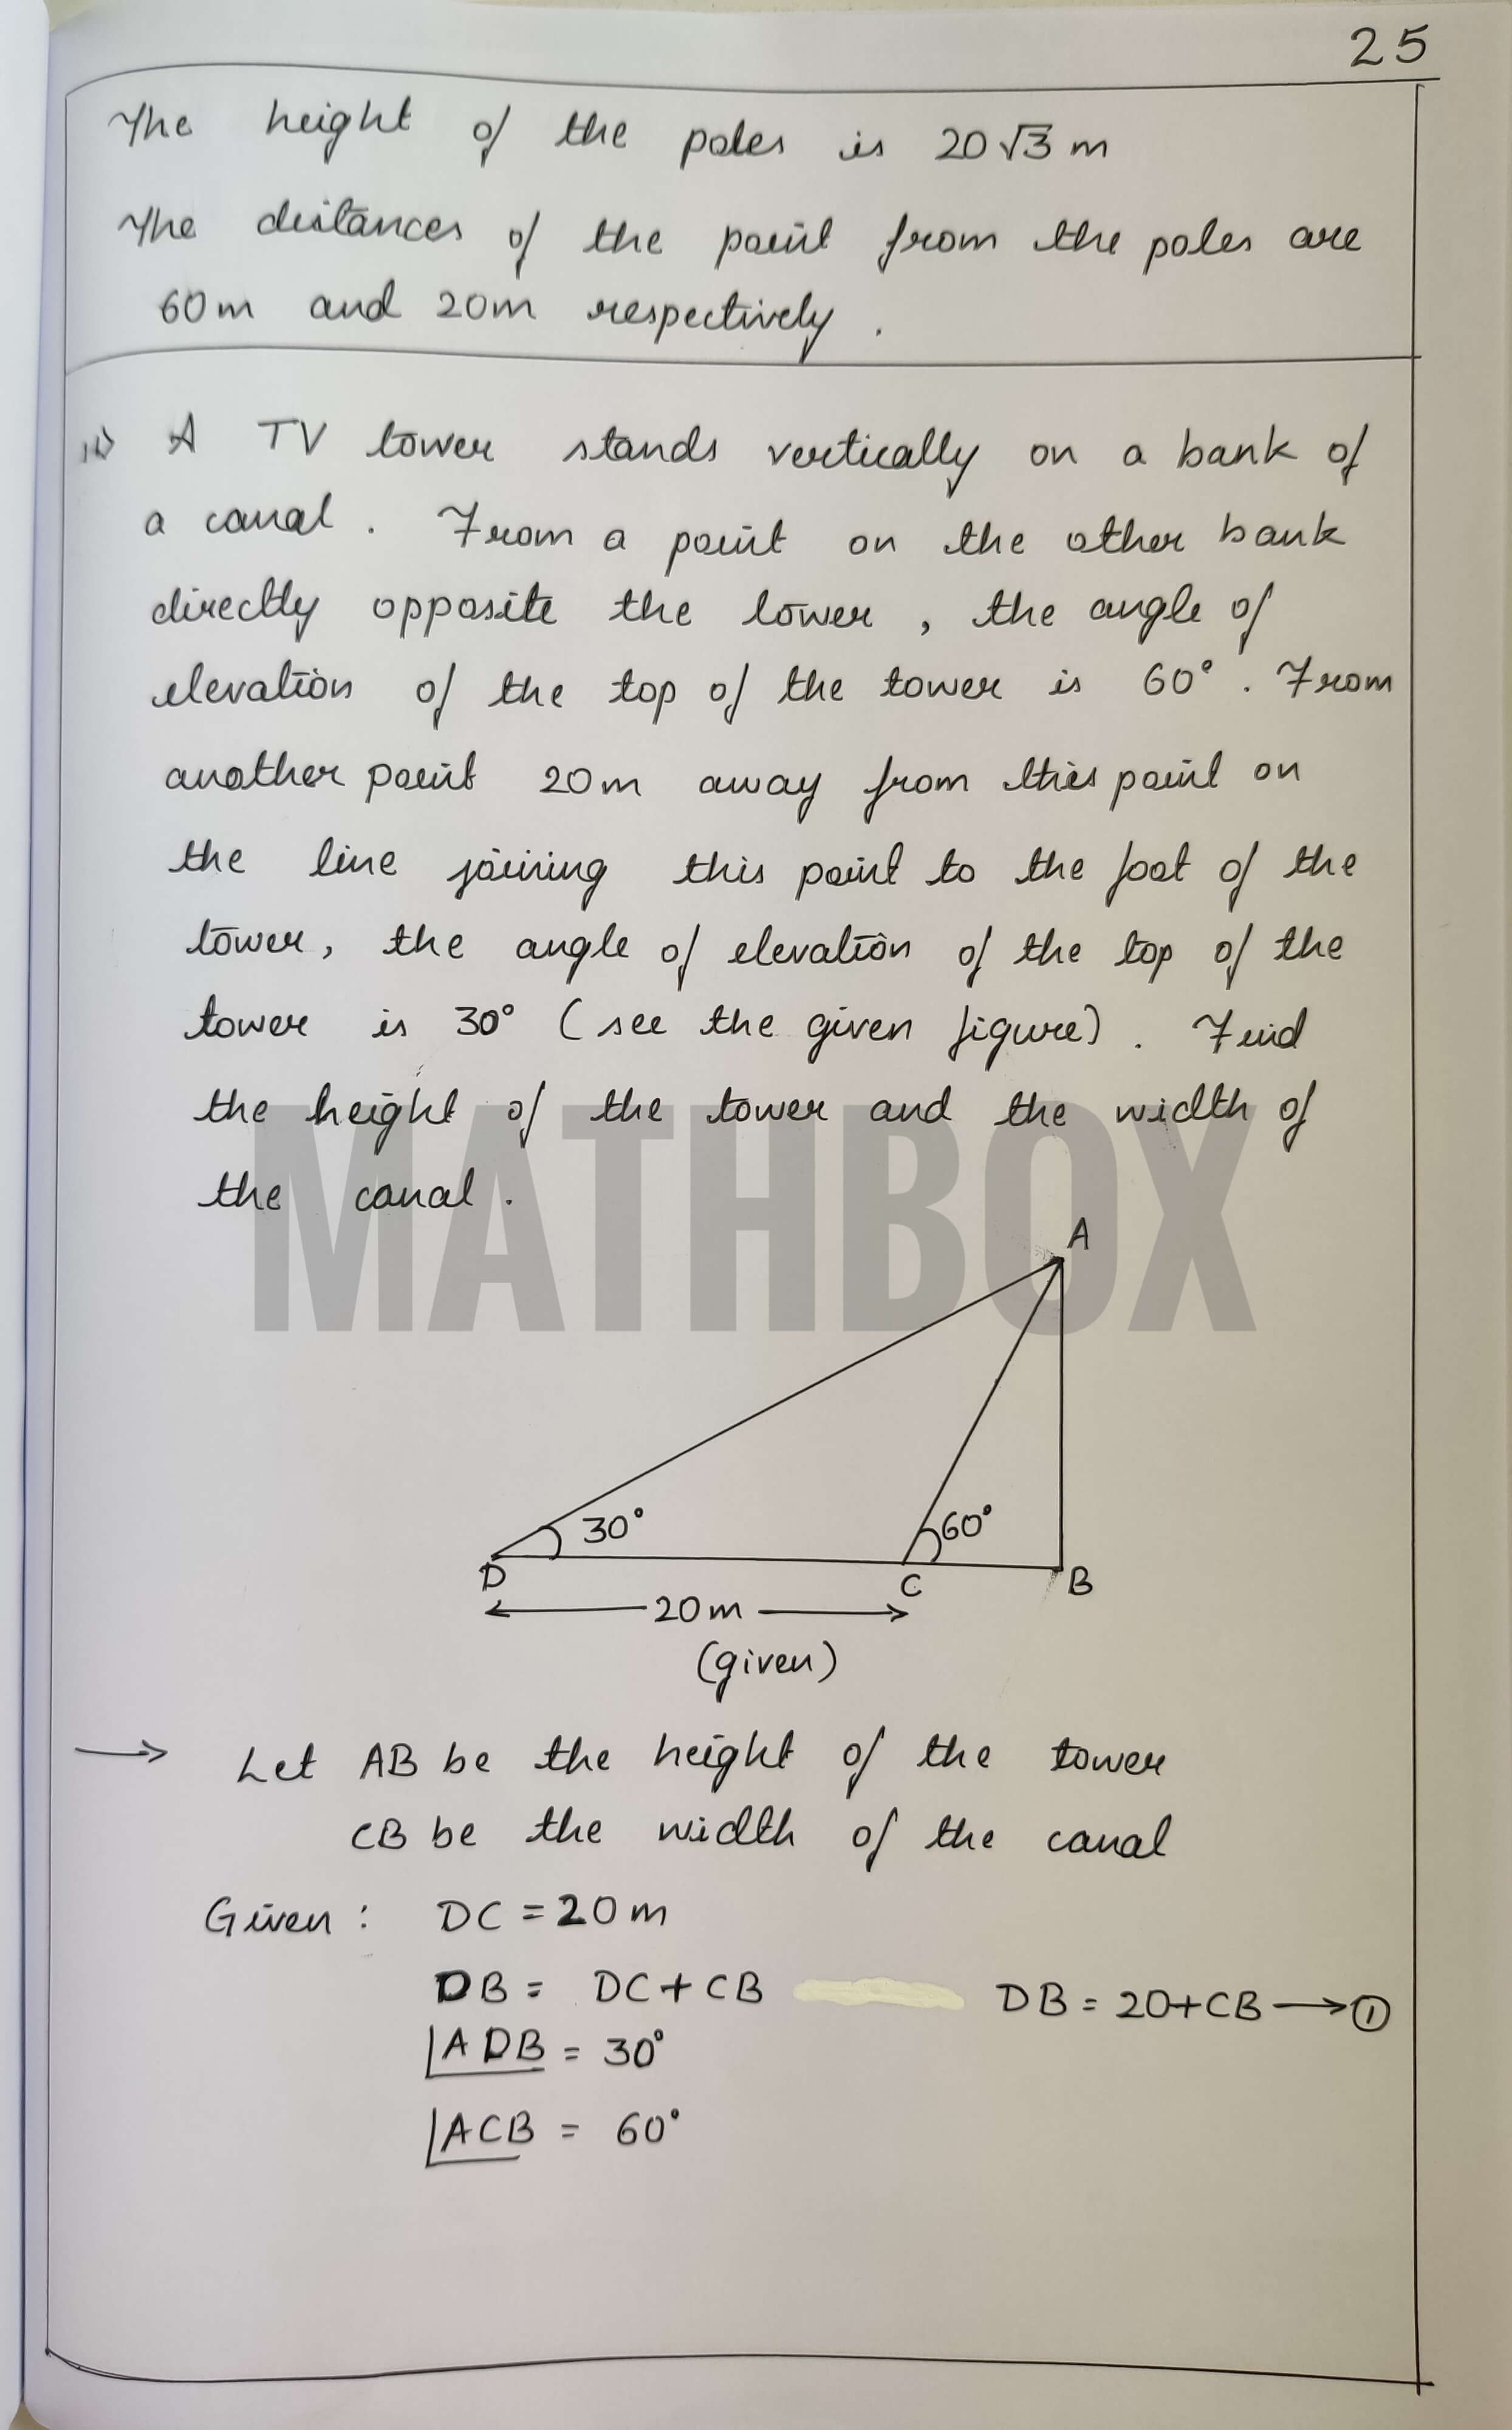 25
The height of the poles is 20√3 m
The distances of the point from the poles are
60m and 20m respectively.
11) A TV tower stands vertically on a bank of
a canal. From a point on the other bank
directly opposite the tower, the angle of
elevation of the top of the tower is 60°. From
another point 20m away from this point on
the line joining this point to the foot of the
tower, the angle of elevation of the top of the
tower is 30° (see the given figure). Find
the height of the tower and the width of
the canal.
MATHBOX
A
30°
60°
D
C
B
20m
(given)
→ Let AB be the height of the tower
CB be the width of the canal
Given: DC = 20m
DB = DC + CB DB = 20+CB → ①
∠ADB = 30°
∠ACB = 60°